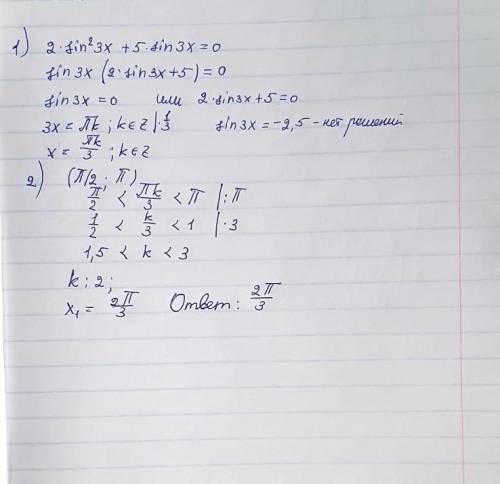 1) 2·sin²3x + 5·sin3x = 0
sin3x (2·sin3x + 5) = 0
sin3x = 0 или 2·sin3x + 5 = 0
3x = πk ; k∈z |·1/3 sin3x = -2,5 - нет решений
x = πk/3 ; k∈z
2) (π/2 ; π)
π/2 < πk/3 < π |:π
1/2 < k/3 < 1 |·3
1,5 < k < 3
k : 2 ;
x₁ = 2π/3 Ответ: 2π/3